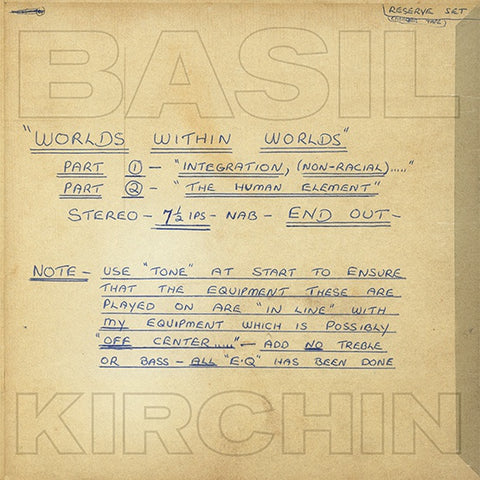 RESERVE SET
BASIL
"WORLDS WITHIN WORLDS"
PART ① – "INTEGRATION, (NON-RACIAL)....."
PART ② – "THE HUMAN ELEMENT"
STEREO – 7½ IPS – NAB – END OUT –
NOTE – USE "TONE" AT START TO ENSURE
THAT THE EQUIPMENT THESE ARE
PLAYED ON ARE "IN LINE" WITH
MY EQUIPMENT WHICH IS POSSIBLY
"OFF CENTER....." – ADD NO TREBLE
OR BASS – ALL "E·Q" HAS BEEN DONE
KIRCHIN